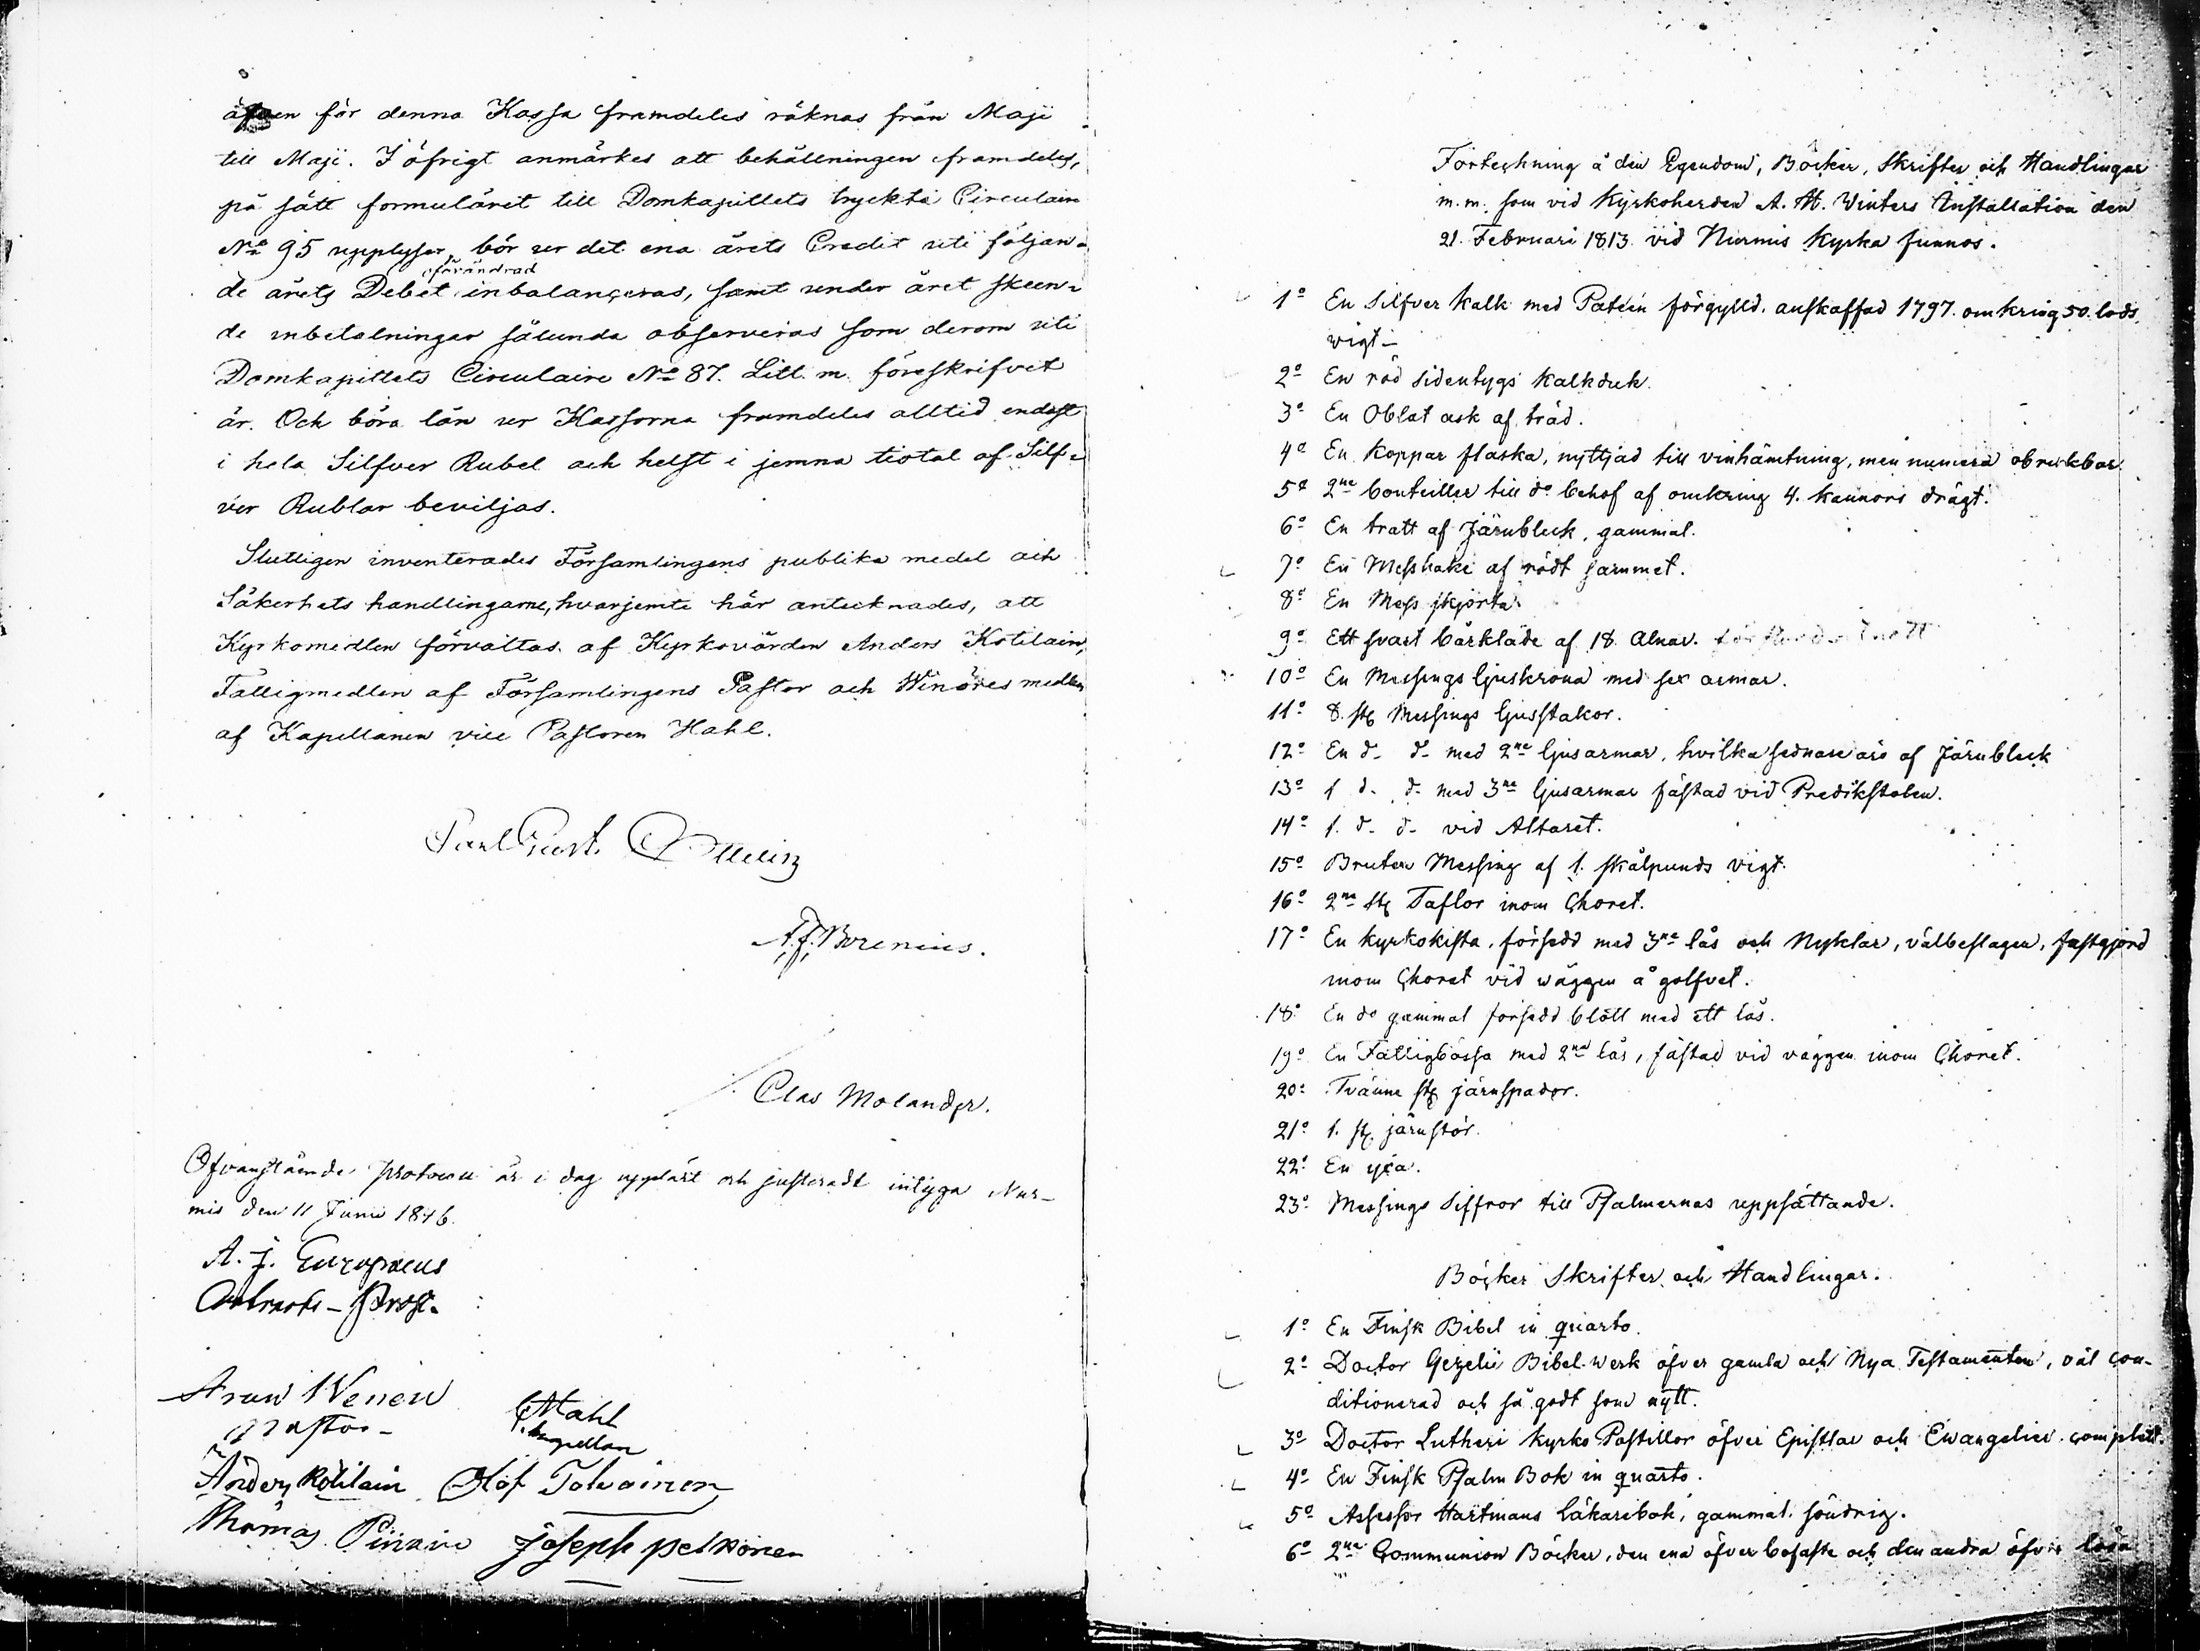 äfven för denna Kassa framdeles räknas från Maji
till Maji. I öfrigt anmärkes att behållningen framdeles,
på sätt formuläret till Domkapitlets tryckta Circulaire
No 95 upplyser, bör ur det ena årets Credit uti följan-
oförändrad
de årets Debet inbalanceras, samt under året skeen-
de inbetalningar sålunda observeras som derom uti
Domkapitlets Circulaire No 87. Litt. m. föreskrifvet
är. Och böra lån ur Kassorna framdeles alltid endast
i hela Silfver Rubel och helst i jemna tiotal af Silf-
ver Rublar beviljas.
Slutligen inventerades Församlingens publika medel och
Säkerhets handlingarne, hvarjemte här antecknades, att
Kyrkomedlen förvaltas af Kyrkovärden Anders Kotilain,
Fattigmedlen af Församlingens Pastor och medlen
af Kapellanen vice Pastoren Hahl.
Carl Gust. Ottelin
A. J. Borenius.
Clas Molander.
Ofvanstående protocoll är i dag uppläst och justeradt intyga Nur-
mis den 11 Junii 1846.
A. J. Europaeus
Contracts-Prost.
Aron Wenell
Pastor
Hahl
Kapellan
Anders Kotilain Olof Tolvainen
Thomas Piirain Joseph pelkonen
Förteckning å den Egendom, Böcker, Skrifter och Handlingar
m.m. som vid Kyrkoherden A. H. Winters Installation den
21. Februari 1813 vid Nurmis Kyrka funnos.
1o En Silfver Kalk med Patéen förgylld. anskaffad 1797. omkring 50. lods
vigt-
2o En röd Sidentygs Kalkduk.
3o En Oblat ask af träd.
4o En Koppar flaska, nyttjad till vinhämtning, men numera obrukbar.
5o 2ne bouteiller till do behof af omkring 4. kannors drägt.
6o En tratt af Järnbleck, gammal.
7o En Messhake af rödt sammet.
8o En Mess skjorta.
9o Ett svart bårkläde af 18. Alnar.
10o En Messings ljuskrona med sex armar.
11o 8. st. Messings ljusstakar.
12o En d- d- med 2ne ljusarmar, hvilka sednare äro af Järnbleck
13o 1 d- d- med 3ne ljusarmar fästad vid Predikstolen.
14o 1. d- d- vid Altaret.
15o Bruten Messing af 1. skålpunds vigt.
16o 2ne st. Taflor inom Choret.
17o En kyrkokista, försedd med 3ne lås och Nyklar, välbeslagen, fastgjord
inom Choret vid wäggen å golfvet.
18o En do gammal försedd blott med ett lås.
19o En Fattigbössa med 2ne lås, fästad vid väggen inom Choret.
20o Tvänne st. järnspador.
21o 1. st. järnstör.
22o En yxa.
23o Messings Siffror till Psalmernas uppsättande.
Böcker Skrifter och Handlingar.
1o En Finsk Bibel in quarto.
2o Doctor Gezelii Bibel-werk öfver gamla och Nya Testamenten, väl con-
ditionerad och så godt som nytt.
3o Doctor Lutheri Kyrko Postillor öfver Epistlar och Ewangelier. complett.
4o En Finsk Psalm Bok in quarto.
5o Assessor Hartmans läkarebok, gammal. söndrig.
6o 2ne Communion Böcker, den ena öfver besaste och den andra öfver lösa